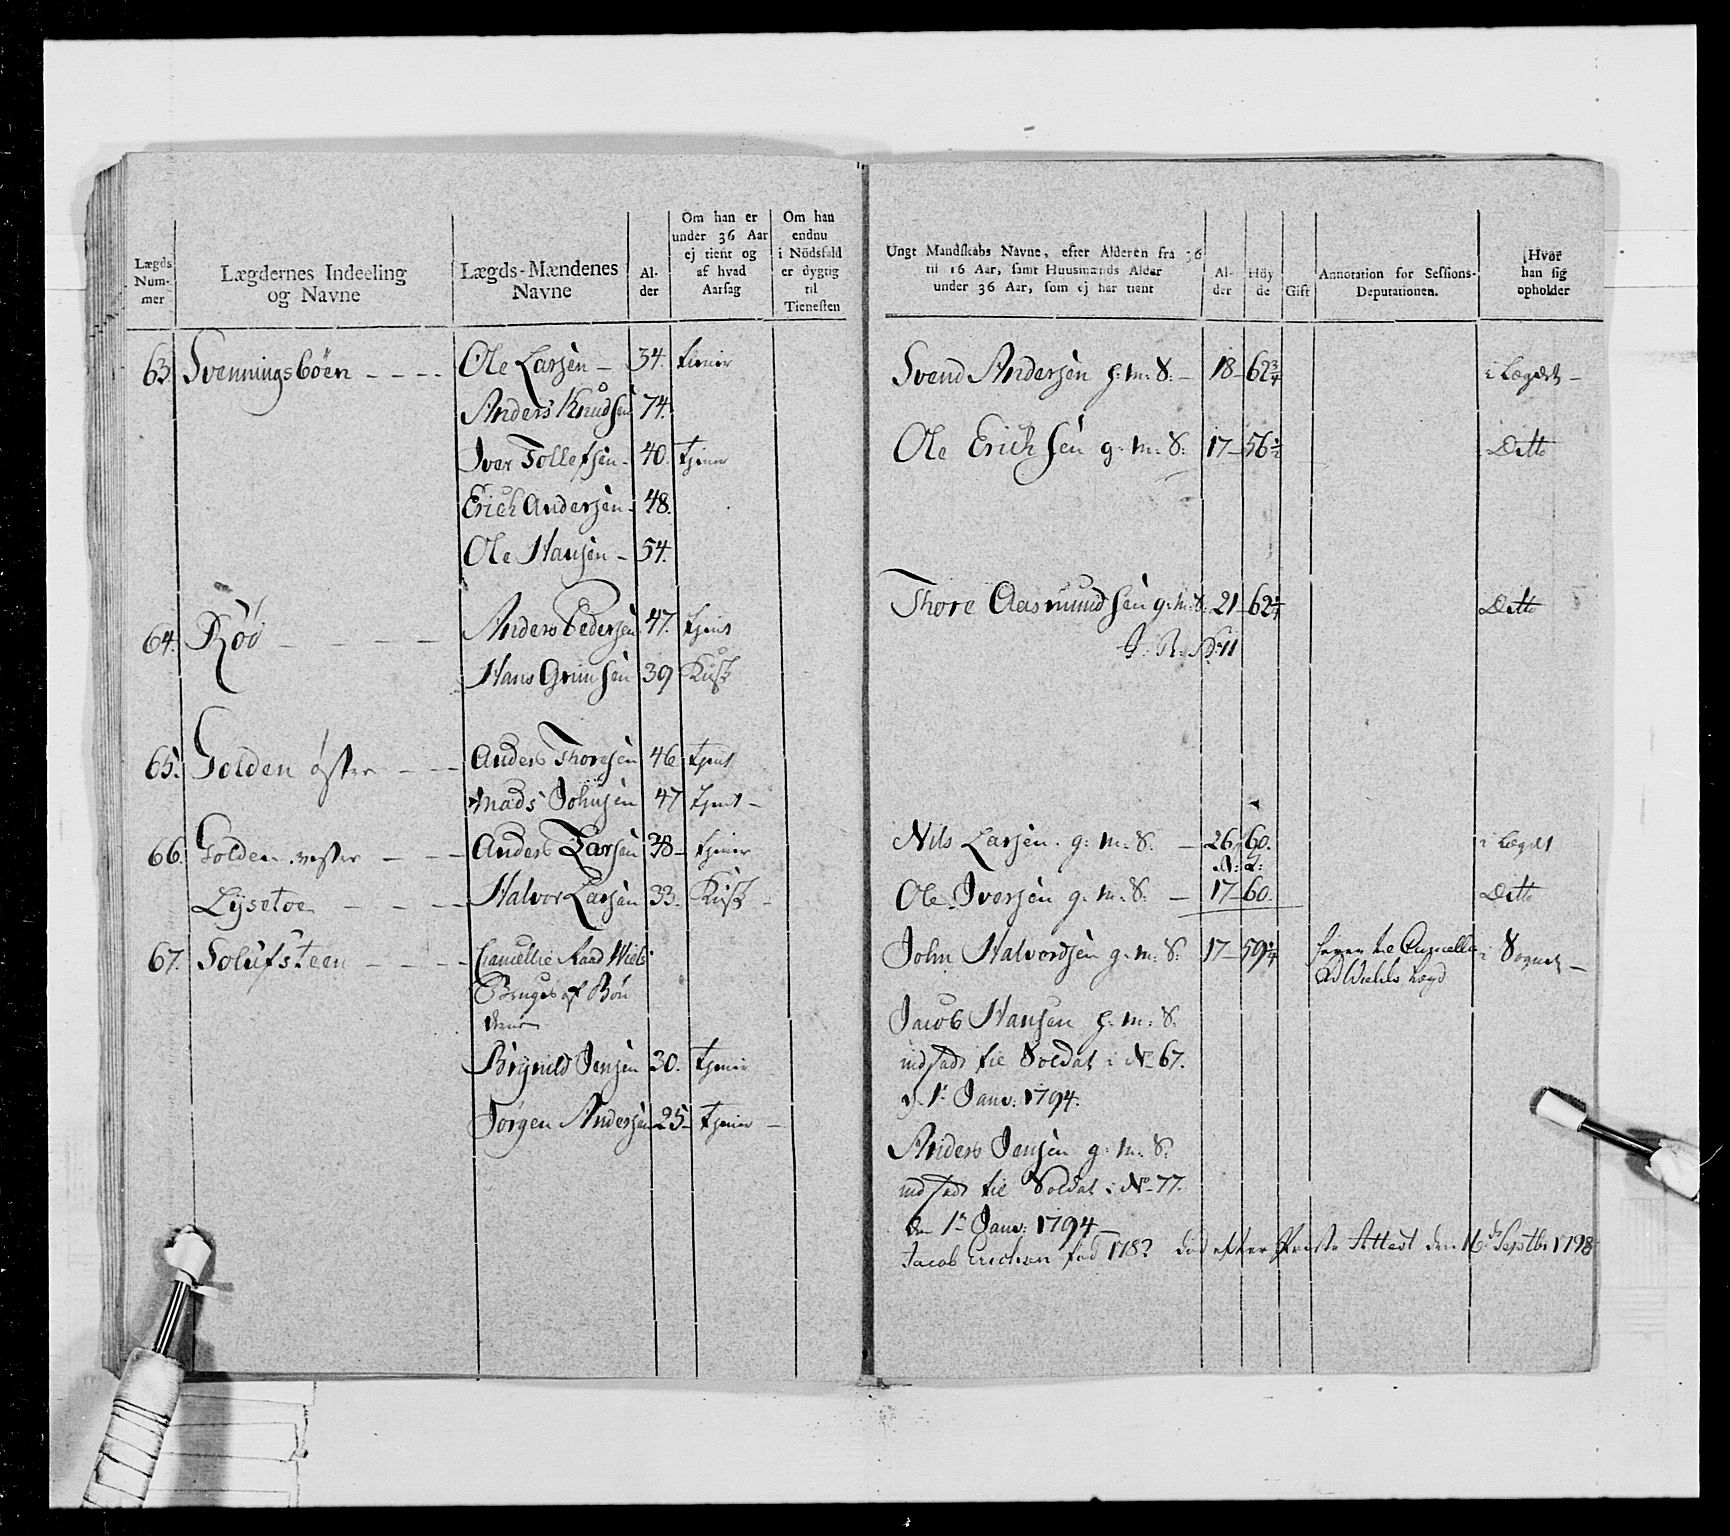 Lægds Num- mer
Lægdernes Indeeling og Navne
Lægds-Mændenes Navne
Al- der
Om han er under 36 Aar ej tient og af hvad Aarsag
Om han endnu i Nödsfald er dygtig til Tienesten
63. Svenningsböen - - - - Ole Larsen - 34. tiener
Anders Knudsen 74.
Iver Tollefsen - 40. tjener
Erich Andersen - 48.
Ole Hansen - 54.
64. Röö - - - Anders Pedersen 47. tjent
Hans Grimsen 39 Kusk
65. Golden öster - - Anders Thoresen 46 tjent
Mads Johnsen 47 tjent -
66. Golden vester - - - Anders Larsen 38 - tjener
Lysetoe - - - Halvor Larsen 33. Kusk -
67. Solufsteen - - - - Cancellie Raad Wiels
Bruges af Bön
derne
Brynild Jensen 30. tjener
Jörgen Andersen 25 - tjener -
Ungt Mandskabs Navne, efter Alderen fra 36 til 16 Aar, samt Huusmænds Alder under 36 Aar, som ej har tient
Al- der
Höy de
Gift
Annotation for Sessions- Deputationen.
Hvor han sig opholder
Svend Andersen g: m: S: - 18 - 62 3/4 i Lægdet -
Ole Erichsen g: m: S: 17 - 56 1/2 Ditto
Thore Aasmundsen g: m: S: 21 - 62 1/4 Ditto
Nils Larsen. g: m: S. - 26, 60. i Lægdet
Ole Iversen g. m: S. - 17 - 60. Ditto
John Halvordsen g: m: S. 17 - 59 1/4 i Sognet -
Jacob Hansen g: m: S.
indsadt til Soldat i No 67.
d. 1. Janv: 1794.
Anders Jensen g: m: S.
indsadt til Soldat i No 77.
den 1. Janv: 1794 -
Jacob Erichsen föd 1783 död efter Præste Attest den 16de Septbr 1798